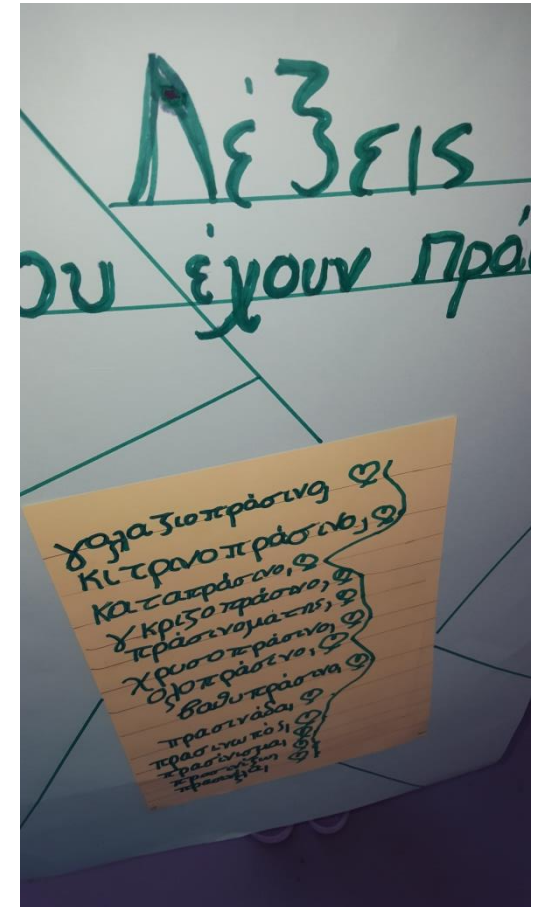 Λέξεις
ου έχουν πρά
γαλαζιοπράσινο,
κιτρινοπράσινο,
καταπράσινο,
γκριζοπράσινο,
πράσινομάτης,
χρυσοπράσινο,
ολοπράσινο,
βαθυπράσινο
πρασινάδα,
πρασινωπός,
πρασίνισμα,
πρασινίζω,
πρασινίλα,